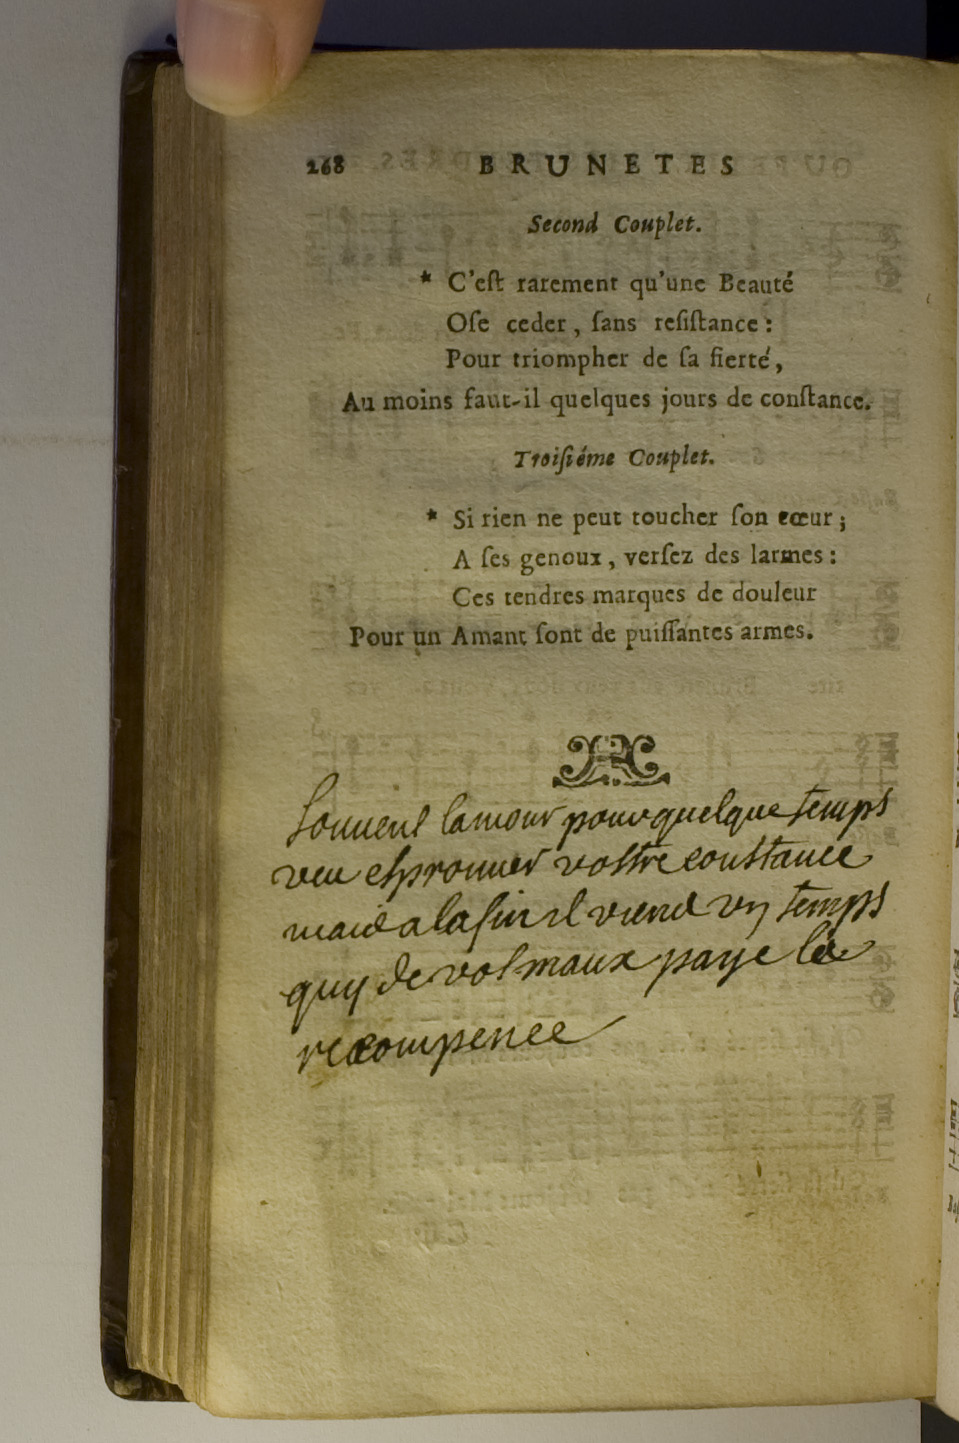 268 BRUNETES
Second Couplet.
* C'eſt rarement qu'une Beauté
Oſe ceder, ſans reſiſtance :
Pour triompher de ſa fierté,
Au moins faut-il quelques jours de conſtance.
Troiſiéme Couplet.
* Si rien ne peut toucher ſon cœur ;
A ſes genoux, verſez des larmes :
Ces tendres marques de douleur
Pour un Amant ſont de puiſſantes armes.
souuent lamour pour quelque temps
veu esprouuer vostre constance
mais a la fin il vient vn temps
quy de vos maux paye la
recompence